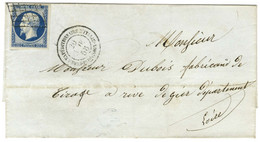 Monsieur
Monsieur Dubois fabricant de
Cirage a rive de gier département
Loire